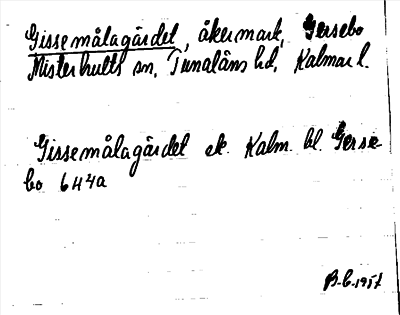 Gissemålagärdet, åkermark, Gersebo
Misterhults sn, Tunaläns hd, Kalmar l.
Gissemålagärdet ek. Kalm. bl. Gerse
bo 644a
B-C. 1957